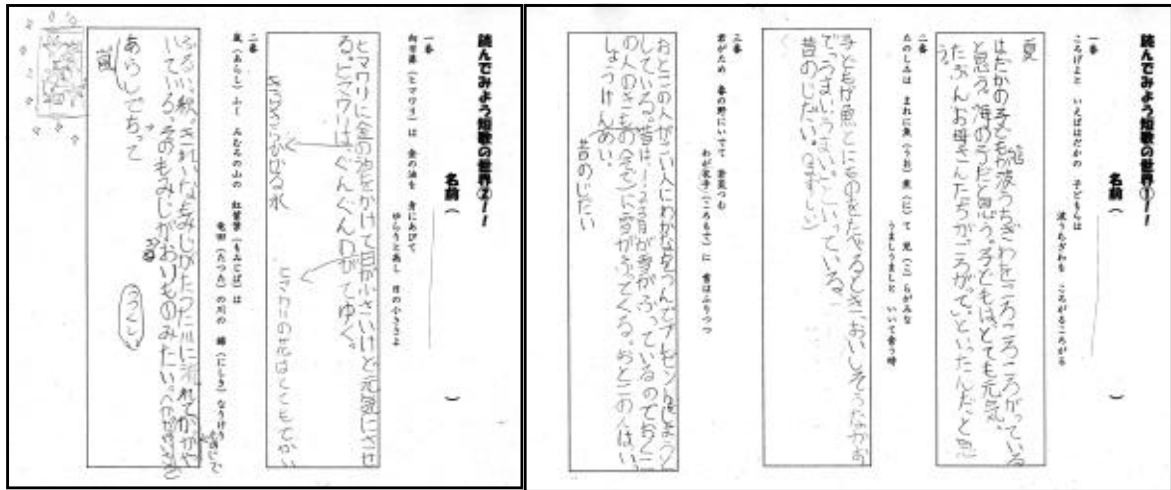 読んでみよう短歌の世界①！！
名前（　　　）
一番
ころげよと いえばはだかの 子どもらは
波うちぎわを ころがるころがる
夏
はだかの子どもが波うちぎわをころころころころがっている
と思う。海のうたと思う。子どもは、とても元気。
たぶんお母さんたちが「ころがって。」といったんだと思
う。
二番
たのしみは まれに魚（うお）煮（に）て 児（こ）らがみな
うましうましと いいて食う時
子どもが魚とにものをたべるとき、おいしそうなかお
で「うまいうまい。」といっている。
昔のじだい。（まずしい）
三番
君がため 春の野にいでて 若菜つむ
わが衣手（ころもで）に 雪はふりつつ
おとこの人がこい人にわかなをつんでプレゼントをしようと
している。昔は、1〜2月が雪がふっているのでおとこ
の人のきもの（そで）に雪がふってくる。おとこの人は、い
っしょうけんめい。
昔のじだい
読んでみよう短歌の世界②！！
名前（　　　）
一番
向日葵（ヒマワリ）は 金の油を 身にあびて
ゆらりと高し 日の小ささよ
ヒマワリに金の油をかけて日が小さいけど元気にさせ
る。ヒマワリは、ぐんぐんのびてゆく。
ヒマワリの花はとてもでかい
二番
嵐（あらし）ふく みむろの山の 紅葉葉（もみじば）は
竜田（たつた）の川の 錦（にしき）なりけり
ふるい秋。きれいなもみじがたつた川に流れてかがや
いている。そのもみじがおりものみたい。
もみじで
うつくしい
あらしでちって
嵐